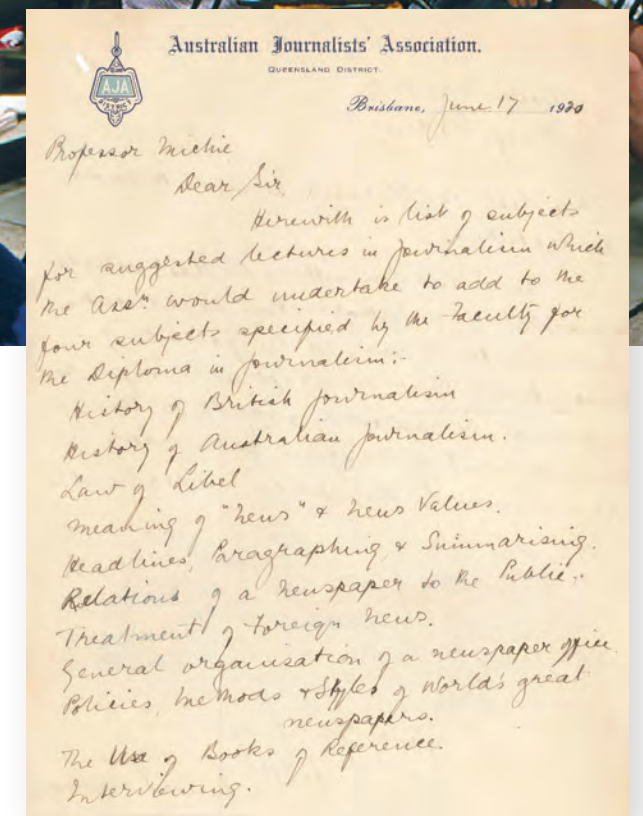 Australian Journalists' Association.
QUEENSLAND DISTRICT.
AJA
DISTRICT
Brisbane, June 17 1920
Professor Michie
Dear Sir
Herewith is list of subjects
for suggested lectures in journalism which
the Assn would undertake to add to the
four subjects specified by the Faculty for
the Diploma in journalism:-
History of British journalism
History of Australian journalism.
Law of Libel
Meaning of "News" & News Values.
Headlines, Paragraphing, & Summarising.
Relations of a Newspaper to the Public.
Treatment of Foreign News.
General organisation of a newspaper office.
Policies, Methods & Styles of World's great
newspapers.
The Use of Books of Reference.
Interviewing.